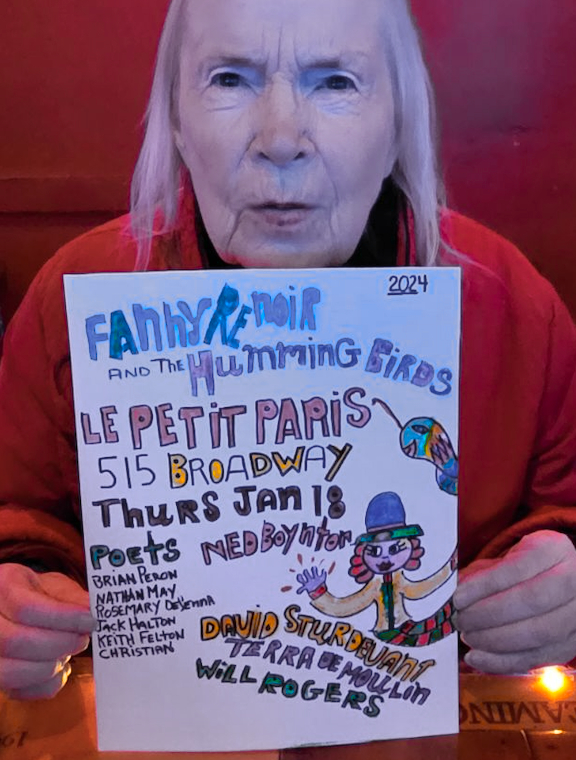 2024
FANNY RENOIR
AND THE HUMMING BIRDS
LE PETIT PARIS
515 BROADWAY
THURS JAN 18
NED BOYNTON
POETS
BRIAN PERON
NATHAN MAY
ROSEMARY DEVENNA
JACK HALTON
KEITH FELTON
CHRISTIAN
DAVID STURDEVANT
TERRA DE MOULIN
WILL ROGERS
CAMINO